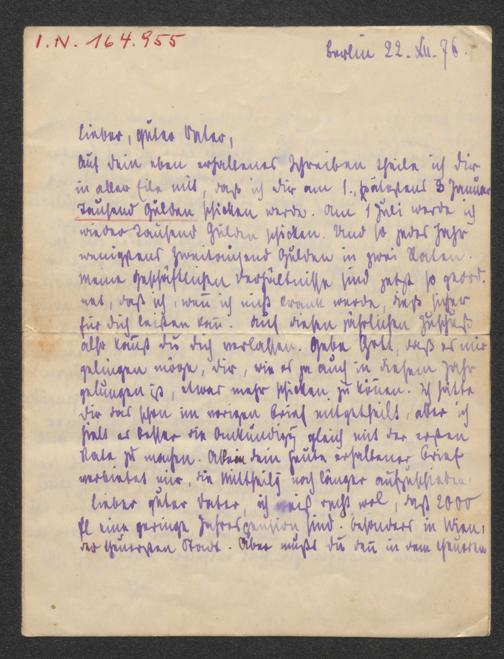 I.N. 164.955
Berlin 22. XII. 76.
Lieber, guter Vater,
Auf dein eben erhaltenes Schreiben theile ich dir
in aller Eile mit, daß ich dir am 1. spätestens 3 Januar
Tausend Gulden schicken werde. Am 1 Juli werde ich
wieder Tausend Gulden schicken. Und so jedes Jahr
wenigstens Zweitausend Gulden in zwei Raten.
Meine geschäftlichen Verhältnisse sind jetzt so geord-
net, daß ich, wenn ich nicht krank werde, dieß sicher
für dich leisten kann. Auf diesen jährlichen Zuschuß
also kannst du dich verlassen. Gebe Gott, daß es mir
gelingen möge, dir, wie es ja auch in diesem Jahr
gelungen ist, etwas mehr schicken zu können. Ich hätte
dir das schon im vorigen Brief mitgetheilt, aber ich
hielt es besser die Ankündigung gleich mit der ersten
Rate zu machen. Allein dein heute erhaltener Brief
verbietet mir, die Mittheilung noch länger aufzuschieben.
Lieber guter Vater, ich weiß recht wol, daß 2000
fl eine geringe Jahrespension sind. Besonders in Wien,
der theuersten Stadt. Aber mußt du denn in dem theueren